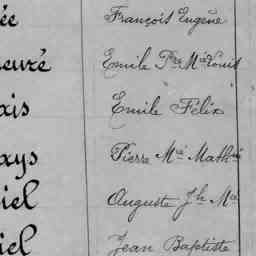 ée François Eugène
euré Emile Pre Mie Louis
ais Emile Félix
ays Pierre Mié Mathie
iel Auguste Jh Mie
iel Jean Baptiste